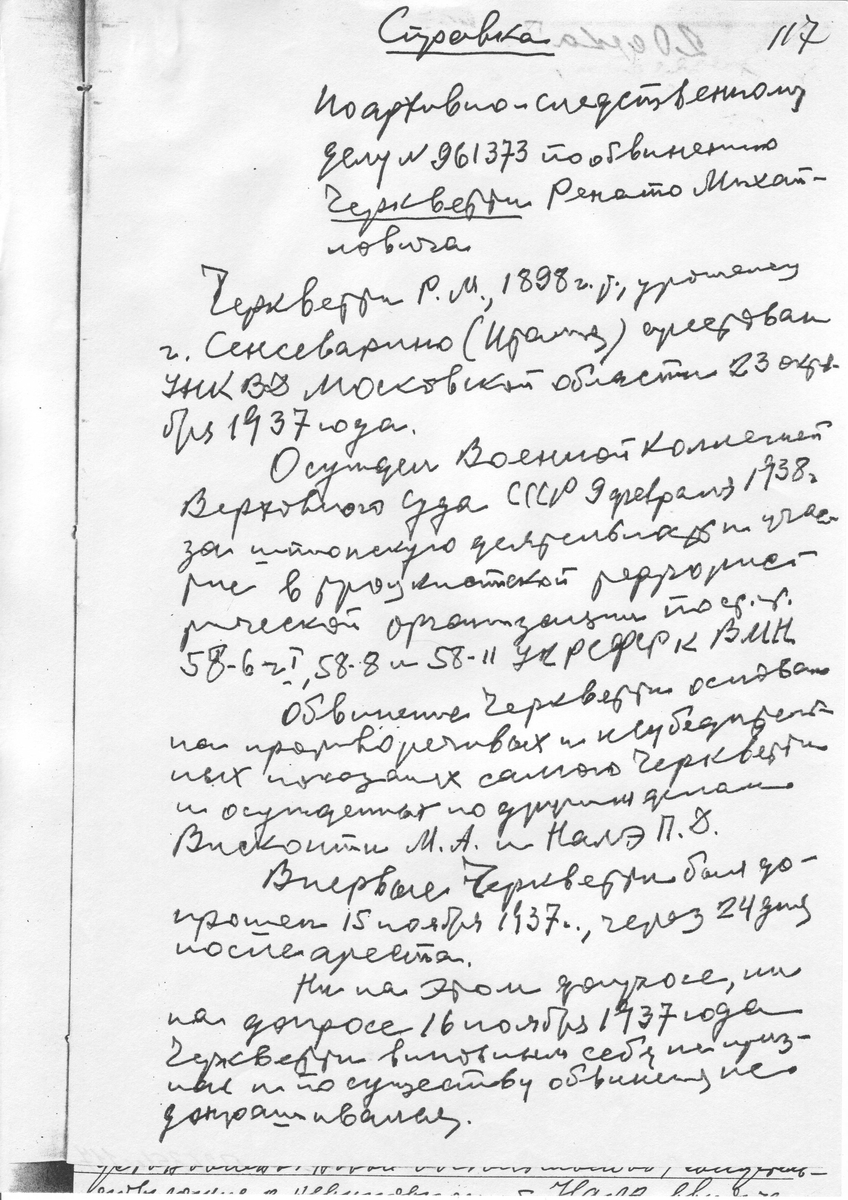 Справка
117
По архивно-следственному
делу № 961373 по обвинению
Черкветти Ренато Михай-
ловича
Черкветти Р. М., 1898 г. р., уроженец
г. Сенсеварино (Италия) арестован
УНКВД Московской области 23 октя-
бря 1937 года.
Осужден Военной Коллегией
Верховного Суда СССР 9 февраля 1938 г
за шпионскую деятельность и учас-
тие в троцкистской террорист
ической организации по ст.ст.
58-6 ч. I, 58-8 и 58-11 УК РСФСР к ВМН.
Обвинение Черкветти основано
на противоречивых и неубедитель-
ных показаниях самого Черкветти
и осужденных по другим делам
Висконти М. А. и Налэ П. Д.
Впервые Черкветти был до-
прошен 15 ноября 1937 г., через 24 дня
после ареста.
Ни на этом допросе, ни
на допросе 16 ноября 1937 года
Черкветти виновным себя не приз-
нал и по существу обвинения не
допрашивался.